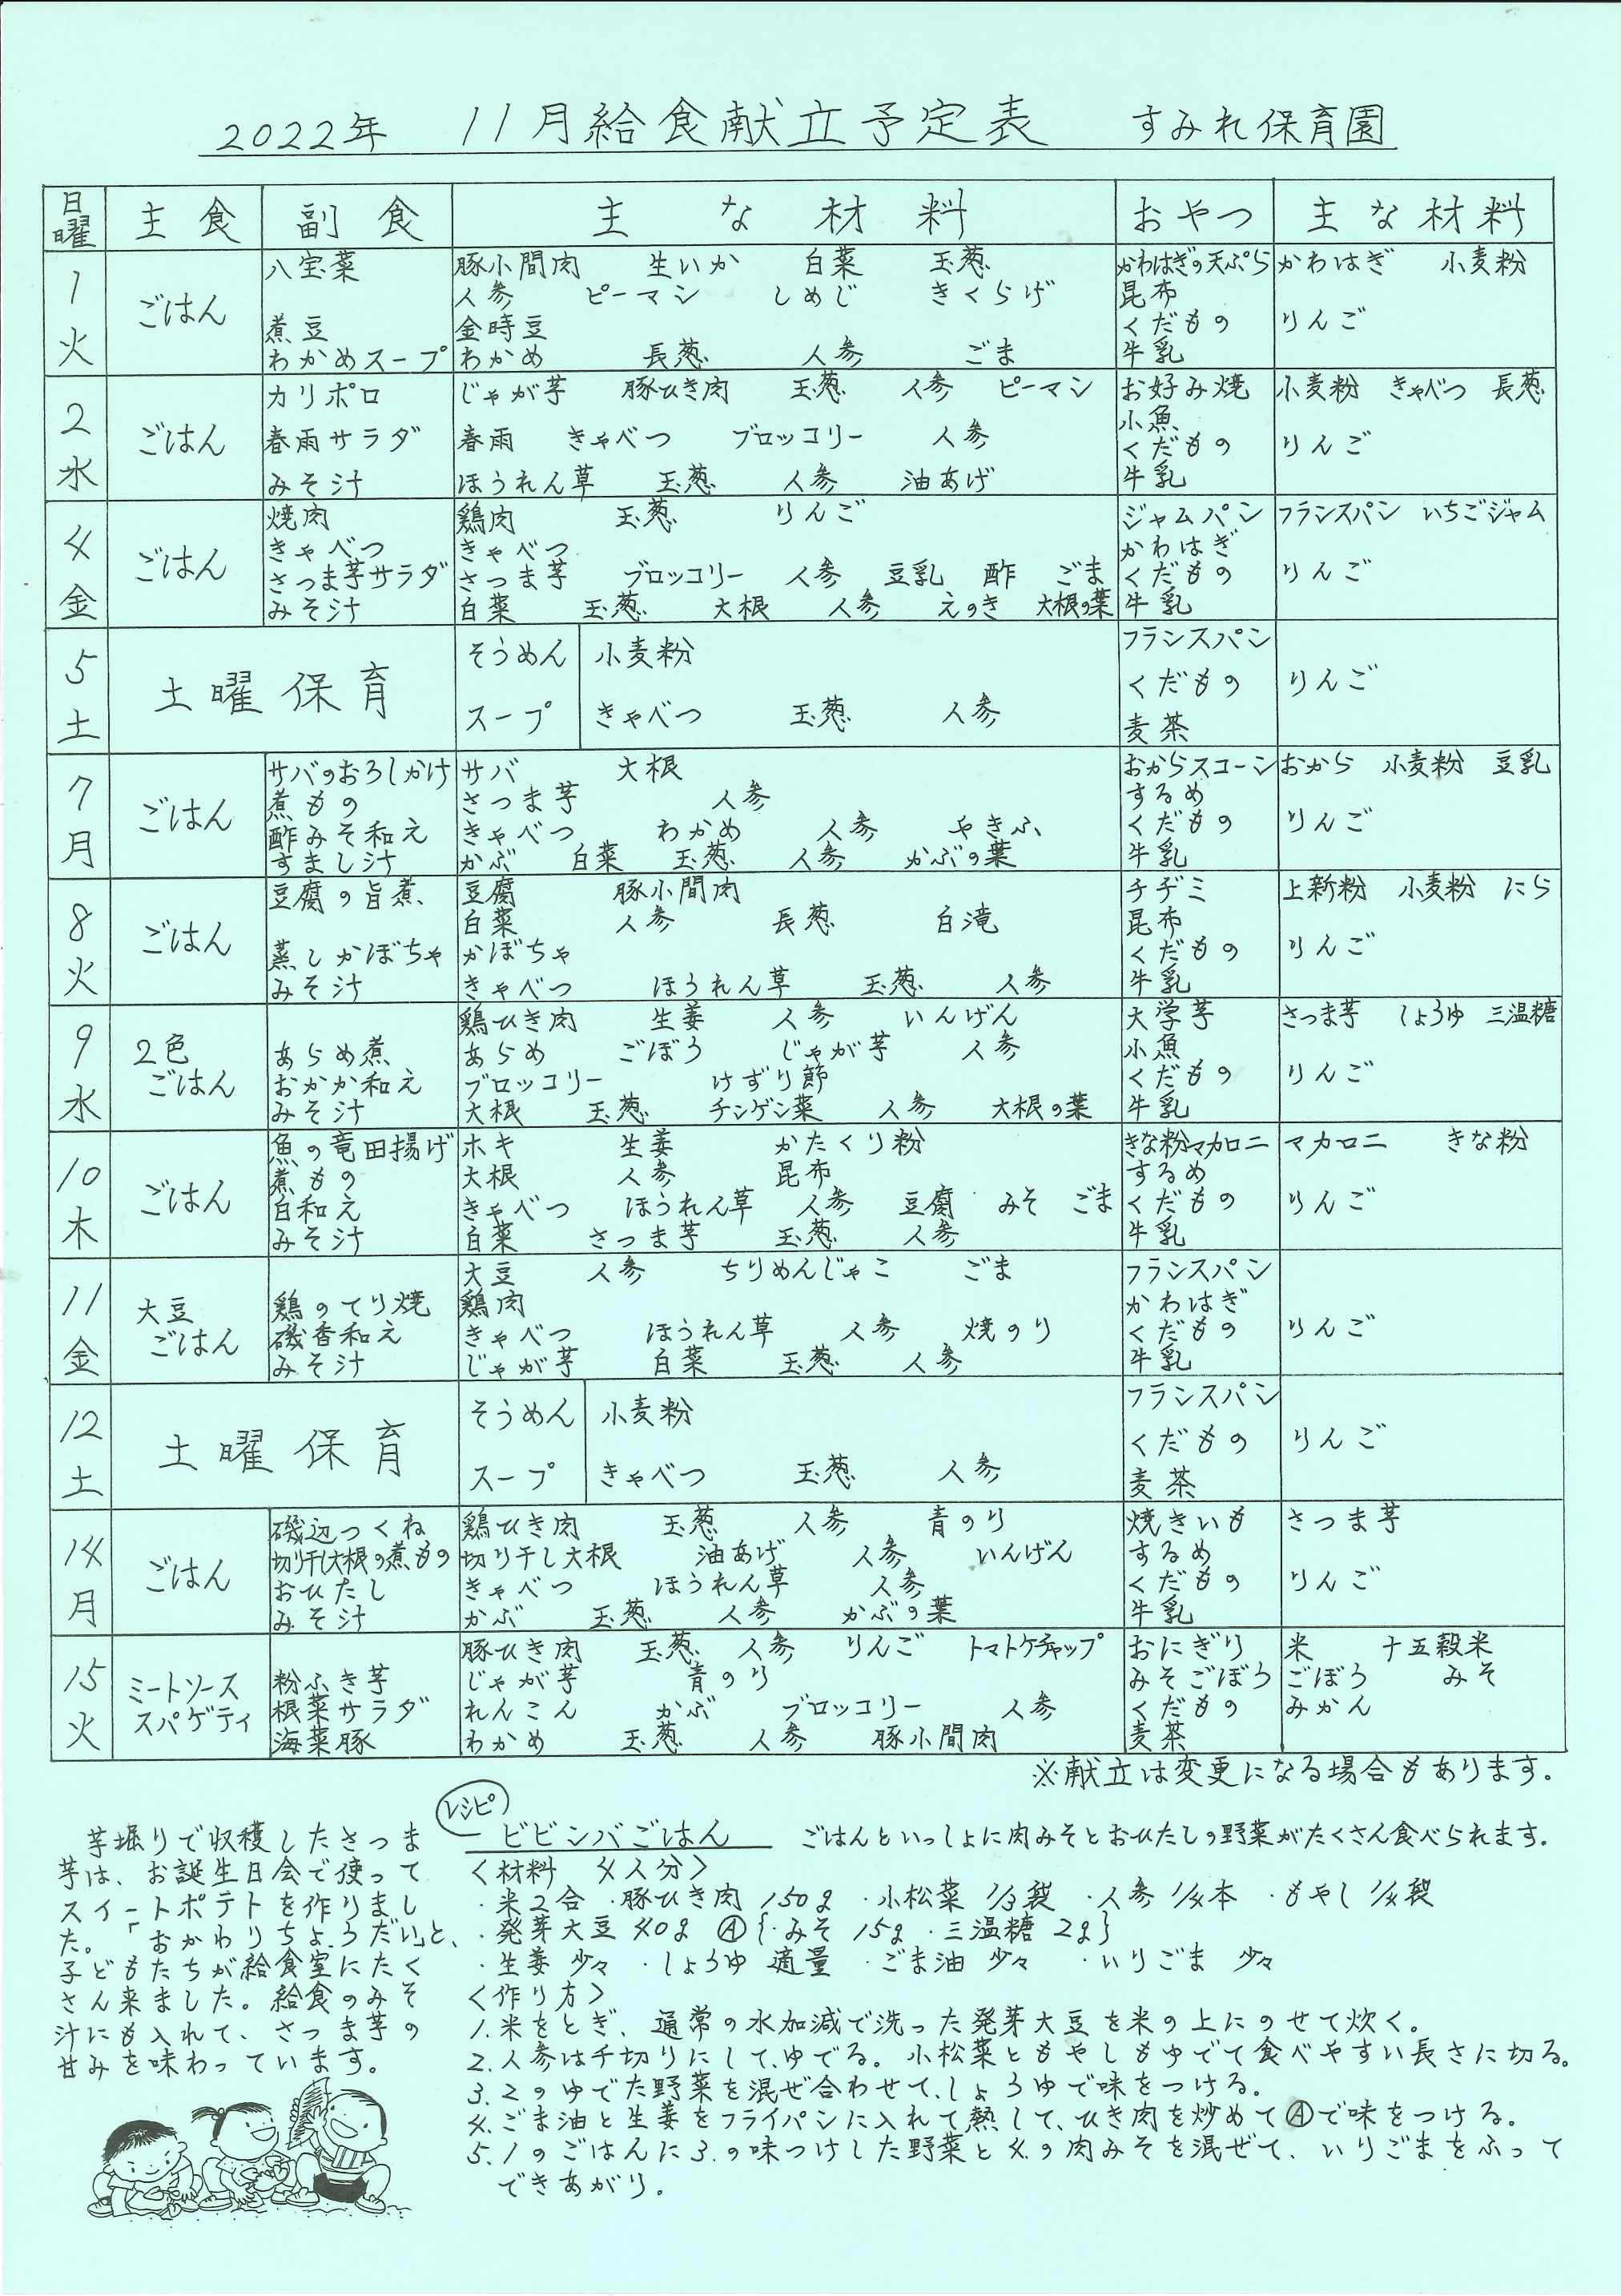 2022年 11月給食献立予定表 すみれ保育園
日曜 主食 副食 主な材料 おやつ 主な材料
1 火 ごはん
八宝菜 豚小間肉 生いか 白菜 玉葱 かわはぎの天ぷら かわはぎ 小麦粉
人参 ピーマン しめじ きくらげ 昆布
煮豆 金時豆 くだもの りんご
わかめスープ わかめ 長葱 人参 ごま 牛乳
2 水 ごはん
カリポロ じゃが芋 豚ひき肉 玉葱 人参 ピーマン お好み焼 小麦粉 きゃべつ 長葱
小魚
春雨サラダ 春雨 きゃべつ ブロッコリー 人参 くだもの りんご
みそ汁 ほうれん草 玉葱 人参 油あげ 牛乳
4 金 ごはん
焼肉 鶏肉 玉葱 りんご ジャムパン フランスパン いちごジャム
きゃべつ きゃべつ かわはぎ
さつま芋サラダ さつま芋 ブロッコリー 人参 豆乳 酢 ごま くだもの りんご
みそ汁 白菜 玉葱 大根 人参 えのき 大根の葉 牛乳
5 土 土曜保育
そうめん 小麦粉 フランスパン
くだもの りんご
スープ きゃべつ 玉葱 人参 麦茶
7 月 ごはん
サバのおろしかけ サバ 大根 おからスコーン おから 小麦粉 豆乳
煮もの さつま芋 人参 するめ
酢みそ和え きゃべつ わかめ 人参 やきふ くだもの りんご
すまし汁 かぶ 白菜 玉葱 人参 かぶの葉 牛乳
8 火 ごはん
豆腐の旨煮 豆腐 豚小間肉 チヂミ 上新粉 小麦粉 にら
白菜 人参 長葱 白滝 昆布
蒸しかぼちゃ かぼちゃ くだもの りんご
みそ汁 きゃべつ ほうれん草 玉葱 人参 牛乳
9 水 2色ごはん
鶏ひき肉 生姜 人参 いんげん 大学芋 さつま芋 しょうゆ 三温糖
あらめ煮 あらめ ごぼう じゃが芋 人参 小魚
おかか和え ブロッコリー けずり節 くだもの りんご
みそ汁 大根 玉葱 チンゲン菜 人参 大根の葉 牛乳
10 木 ごはん
魚の竜田揚げ ホキ 生姜 かたくり粉 きな粉マカロニ マカロニ きな粉
煮もの 大根 人参 昆布 するめ
白和え きゃべつ ほうれん草 人参 豆腐 みそ ごま くだもの りんご
みそ汁 白菜 さつま芋 玉葱 人参 牛乳
11 金 大豆ごはん
大豆 人参 ちりめんじゃこ ごま フランスパン
鶏のてり焼 鶏肉 かわはぎ
磯香和え きゃべつ ほうれん草 人参 焼のり くだもの りんご
みそ汁 じゃが芋 白菜 玉葱 人参 牛乳
12 土 土曜保育
そうめん 小麦粉 フランスパン
くだもの りんご
スープ きゃべつ 玉葱 人参 麦茶
14 月 ごはん
磯辺つくね 鶏ひき肉 玉葱 人参 青のり 焼きいも さつま芋
切り干し大根の煮もの 切り干し大根 油あげ 人参 いんげん するめ
おひたし きゃべつ ほうれん草 人参 くだもの りんご
みそ汁 かぶ 玉葱 人参 かぶの葉 牛乳
15 火 ミートソーススパゲティ
豚ひき肉 玉葱 人参 りんご トマトケチャップ おにぎり 米 十五穀米
粉ふき芋 じゃが芋 青のり みそごぼう ごぼう みそ
根菜サラダ れんこん かぶ ブロッコリー 人参 くだもの みかん
海菜豚 わかめ 玉葱 人参 豚小間肉 麦茶
※献立は変更になる場合もあります。
芋堀りで収穫したさつま
芋は、お誕生日会で使って
スイートポテトを作りまし
た。「おかわりちょうだい」と、
子どもたちが給食室にたく
さん来ました。給食のみそ
汁にも入れて、さつま芋の
甘みを味わっています。
レシピ
ビビンバごはん ごはんといっしょに肉みそとおひたしの野菜がたくさん食べられます。
〈材料 4人分〉
・米2合 ・豚ひき肉 150g ・小松菜 1/3袋 ・人参 1/4本 ・もやし 1/4袋
・発芽大豆 40g Ⓐ{・みそ 15g ・三温糖 2g}
・生姜 少々 ・しょうゆ 適量 ・ごま油 少々 ・いりごま 少々
〈作り方〉
1.米をとぎ、通常の水加減で洗った発芽大豆を米の上にのせて炊く。
2.人参は千切りにして、ゆでる。小松菜ともやしもゆでて食べやすい長さに切る。
3.2のゆでた野菜を混ぜ合わせて、しょうゆで味をつける。
4.ごま油と生姜をフライパンに入れて熱して、ひき肉を炒めてⒶで味をつける。
5.1のごはんに3.の味つけした野菜と4.の肉みそを混ぜて、いりごまをふって
できあがり。